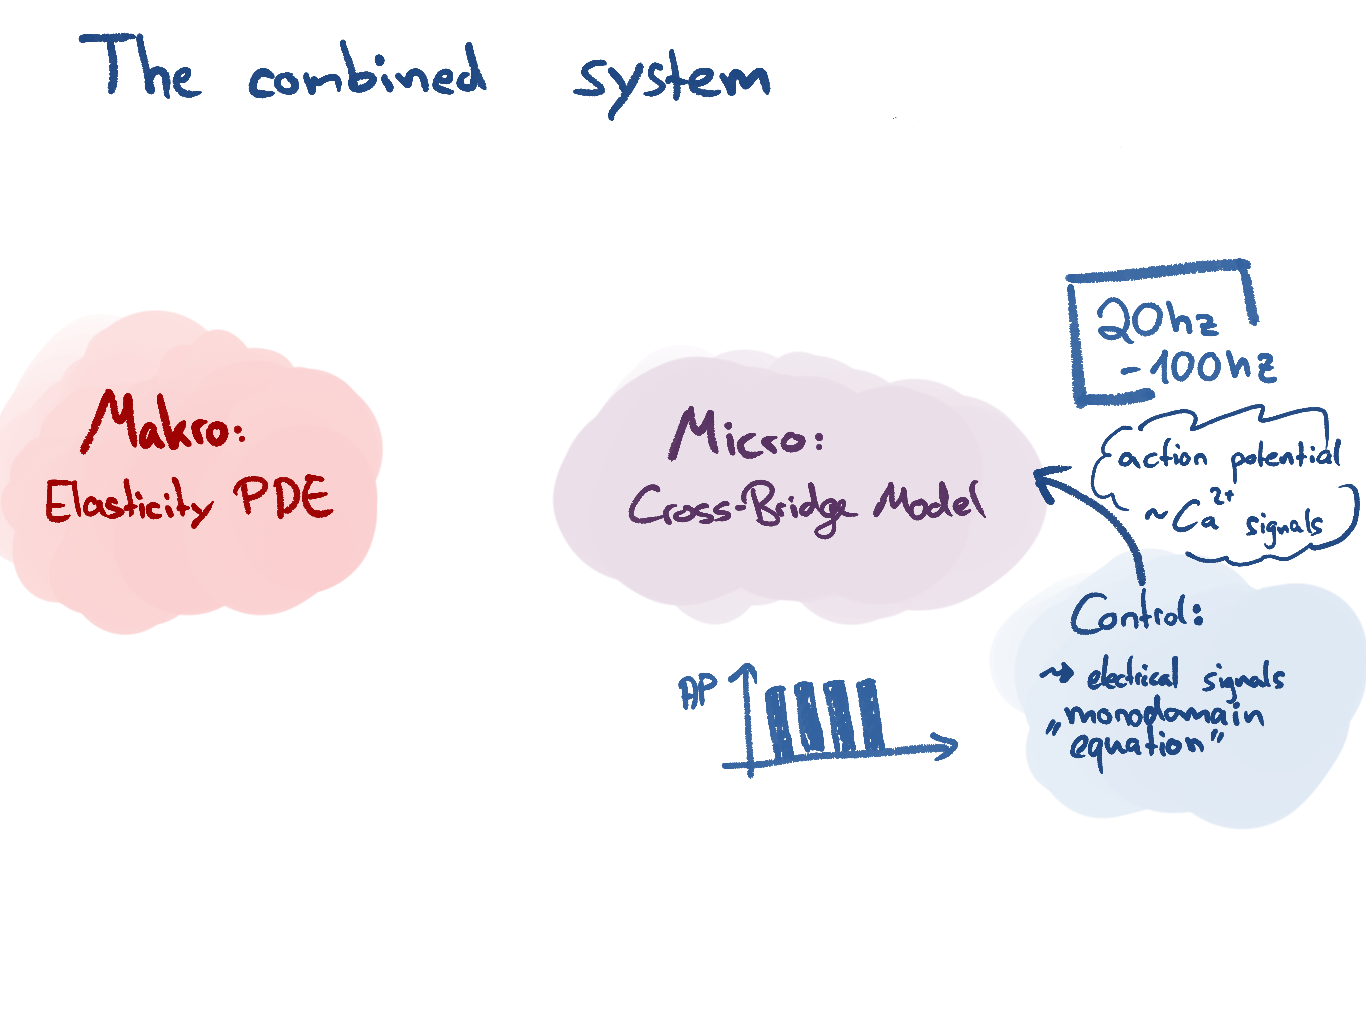 The combined system
Makro:
Elasticity PDE
Micro:
Cross-Bridge Model
20hz
-100hz
action potential
~Ca²⁺ signals
Control:
⇝ electrical signals
„monodomain
equation"
AP